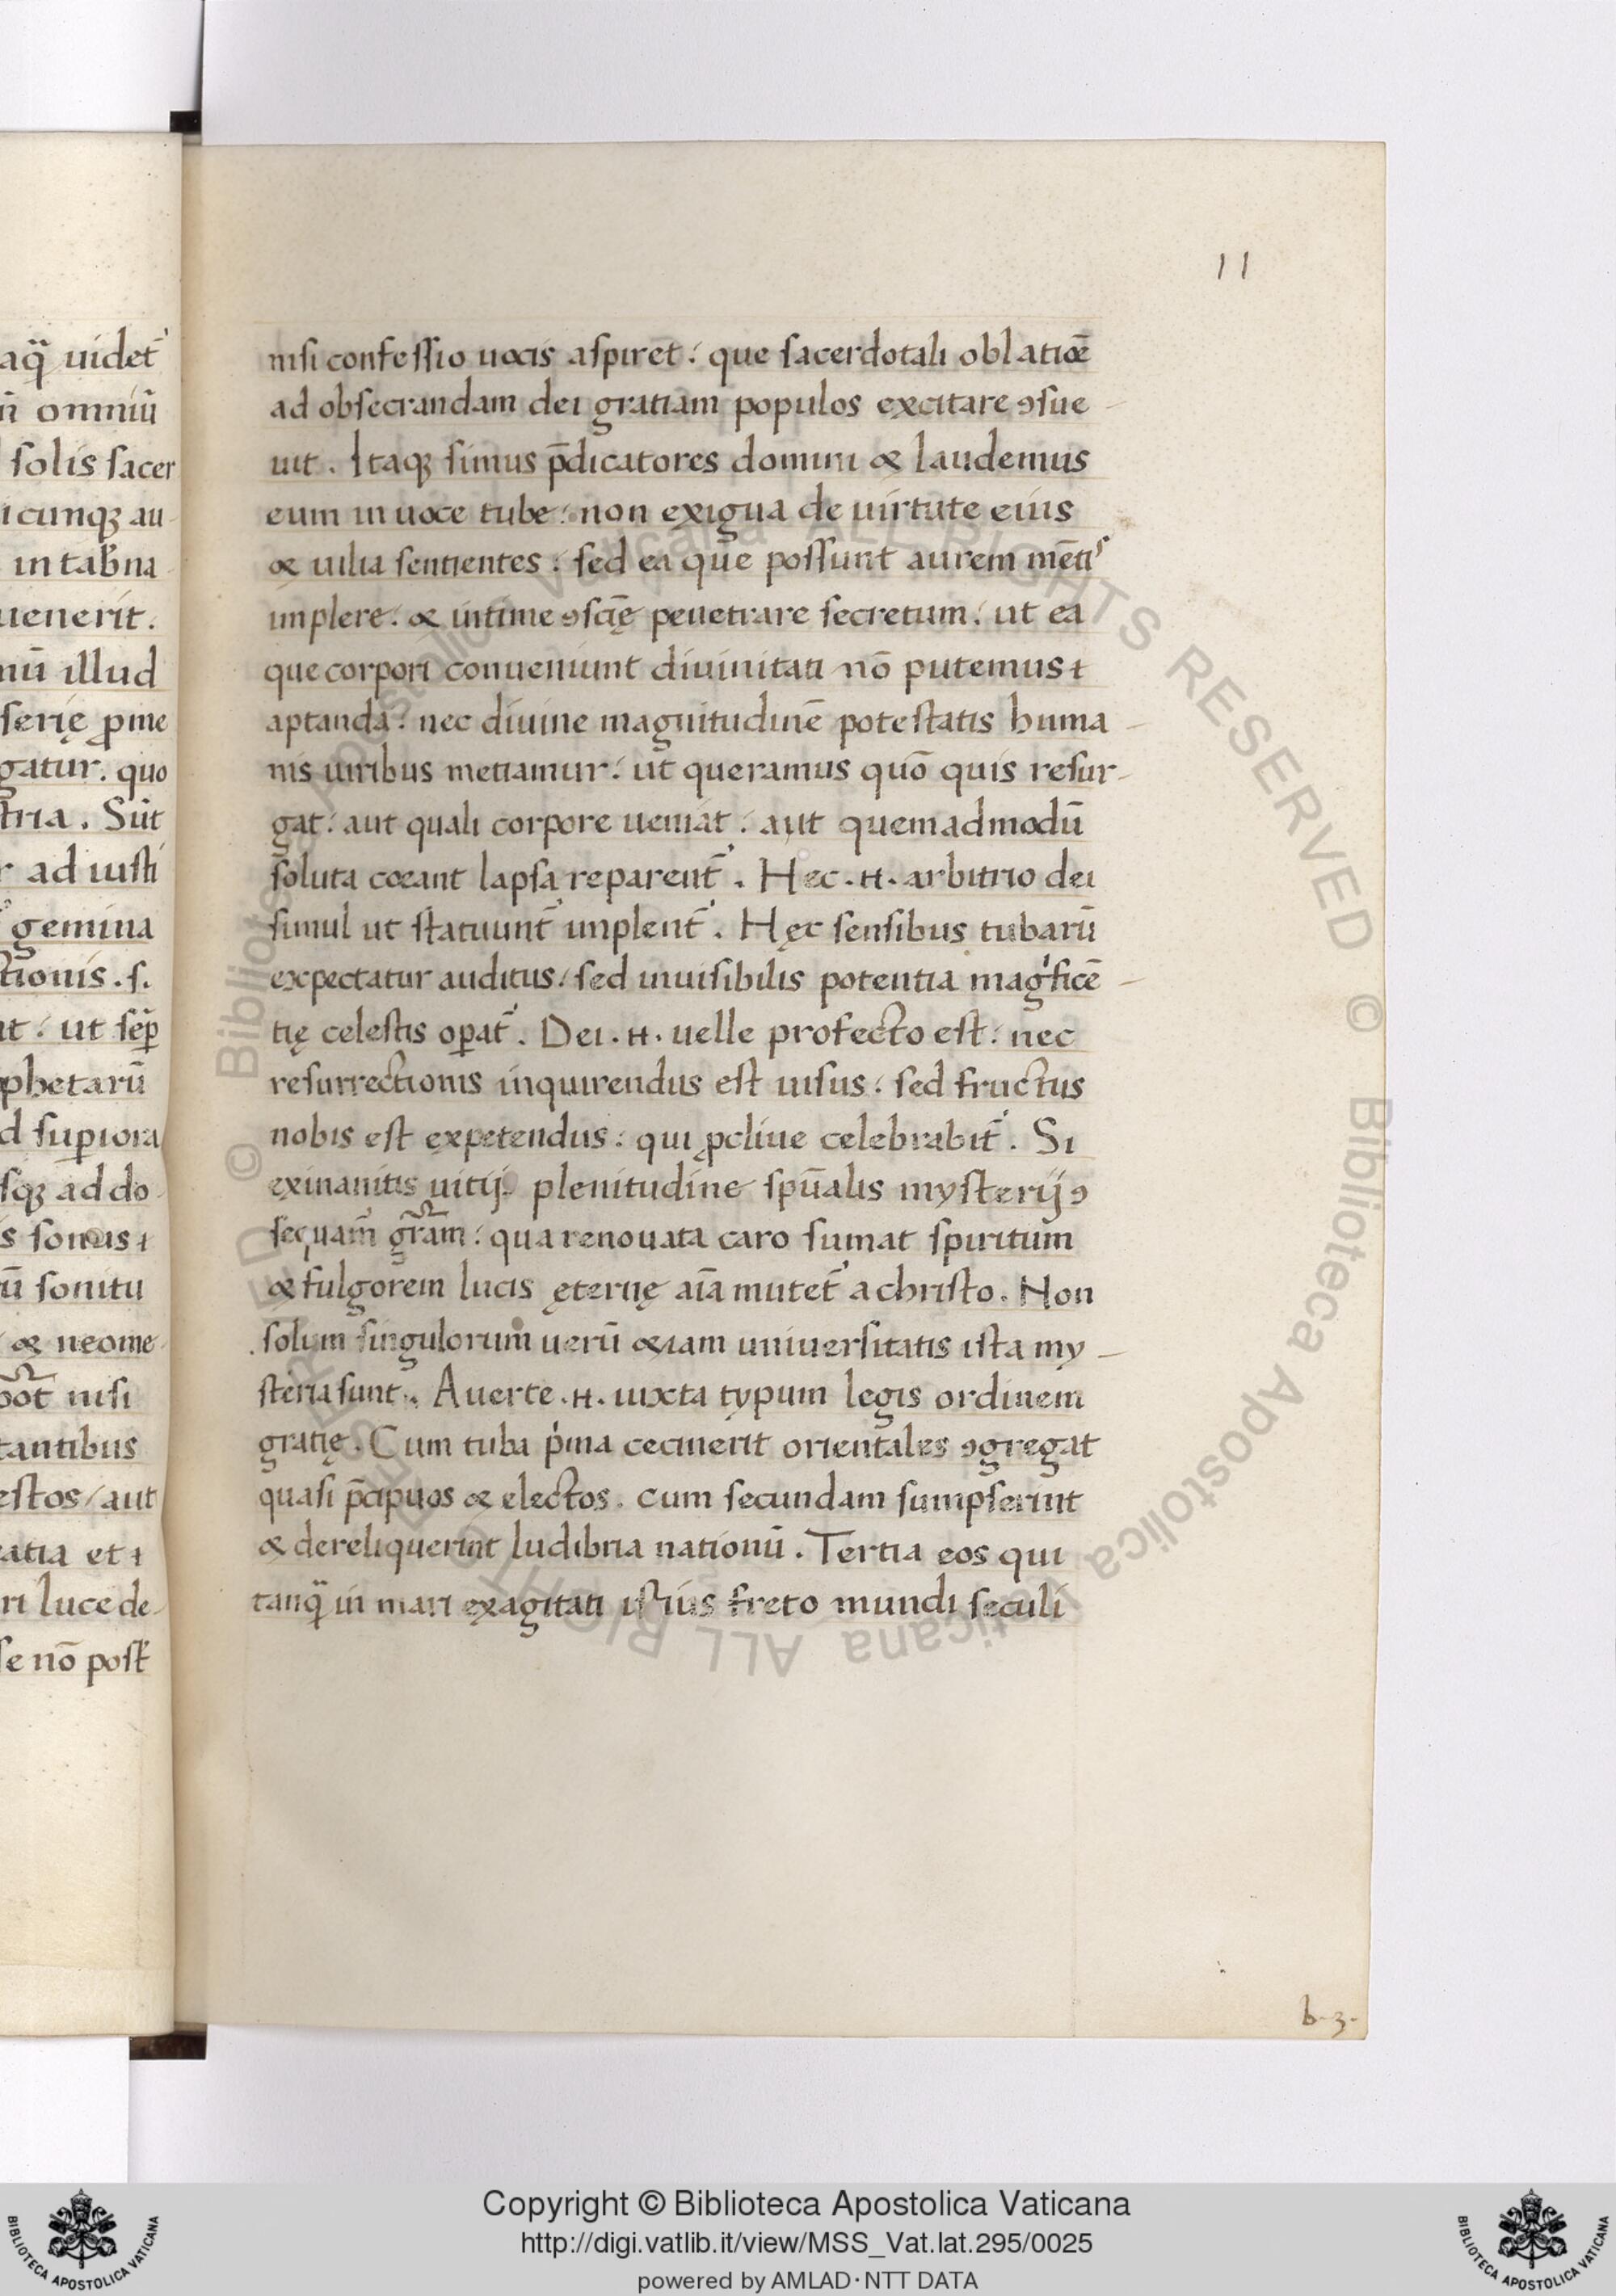 11
aq̄ uidet᷑
ū omniū
solis sacer
icunqꝫ au-
in tab̄na
uenerit.
nū illud
serię ꝓme
gatur. quo
tria. Sūt
r ad iusti
gemina
ctionis .s.
ut: ut sep̄
phetarū
d sup̱iora
sqꝫ ad do-
s sonus ɨ
rū sonitu
& neome-
pōt nisi
tantibus
estos / aut
ratia et ɨ
ri luce de-
se nō post
nisi confessio uocis aspiret: que sacerdotali oblatiōe
ad obsecrandam dei gratiam populos excitare ꝯsue-
uit. Itaqꝫ simus p̄dicatores domini & laudemus
eum in uoce tube: non exigua de uirtute eius
& uilia sentientes: sed ea que possunt aurem mētis
implere: & intime ꝯscię̄ penetrare secretum: ut ea
que corpori conueniunt diuinitati nō putemus ɨ
aptanda: nec diuine magnitudinē potestatis huma-
nis uiribus metiamur: ut queramus quō quis resur-
gat: aut quali corpore ueniat: aut quemadmodū
soluta coeant lapsa reparent᷑. Hec .n. arbitrio dei
simul ut statuunt᷑ implent᷑. Hęc sensibus tubarū
expectatur auditus / sed inuisibilis potentia magͥficē-
tię celestis op̱at᷑. Dei .n. uelle profecto est: nec
resurrectionis inquirendus est uisus: sed fructus
nobis est expetendus: qui ꝓcliue celebrabit᷑. Si
exinanitis uitij. plenitudine spūalis mysterij ꝯ
sequam̄ grām: qua renouata caro sumat spiritum
& fulgorem lucis ęternę aīa mutet᷑ a christo. Non
solum singulorum uerū &iam uniuersitatis ista my-
steria sunt. Auerte .n. iuxta typum legis ordinem
gratię. Cum tuba pͥma cecinerit orientales ꝯgregat
quasi p̄cipuos & electos. cum secundam sumpserint
& dereliquerint ludibria nationū. Tertia eos qui
tanq̄ in mari exagitati istius freto mundi seculi
b.3.
© Biblioteca Apostolica Vaticana ALL RIGHTS RESERVED © Biblioteca Apostolica Vaticana ALL RIGHTS RESERVED
Copyright © Biblioteca Apostolica Vaticana
http://digi.vatlib.it/view/MSS_Vat.lat.295/0025
powered by AMLAD·NTT DATA
BIBLIOTECA APOSTOLICA VATICANA
BIBLIOTECA APOSTOLICA VATICANA